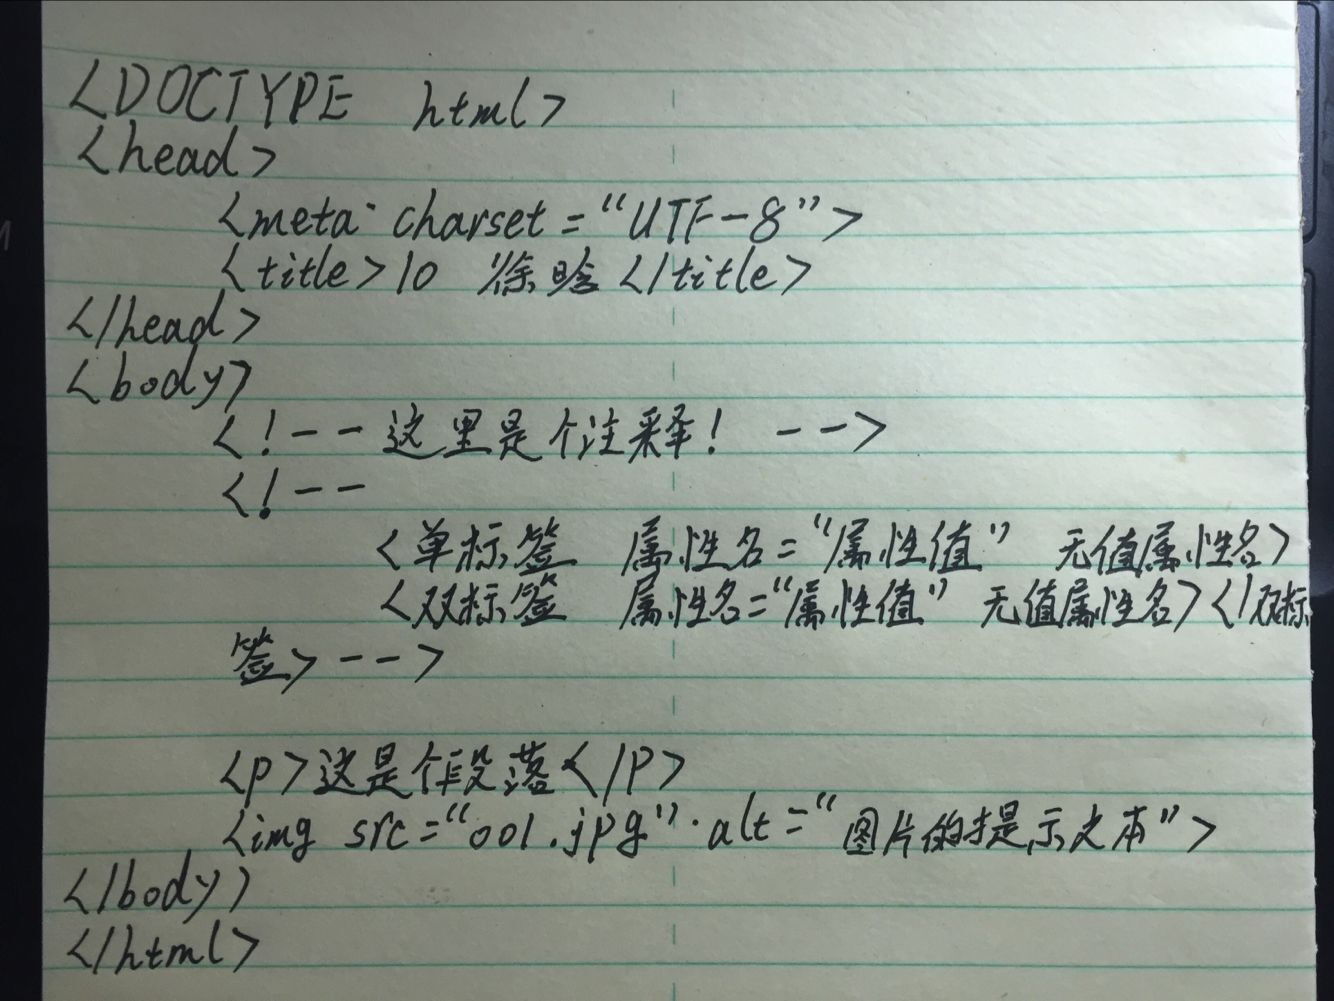 <DOCTYPE html>
<head>
<meta charset="UTF-8">
<title>10 徐晗</title>
</head>
<body>
<!--这里是个注释! -->
<!--
<单标签 属性名="属性值" 无值属性名>
<双标签 属性名="属性值" 无值属性名></双标
签>-->
<p>这是个段落</p>
<img src="001.jpg" alt="图片的提示文本">
</body>
</html>